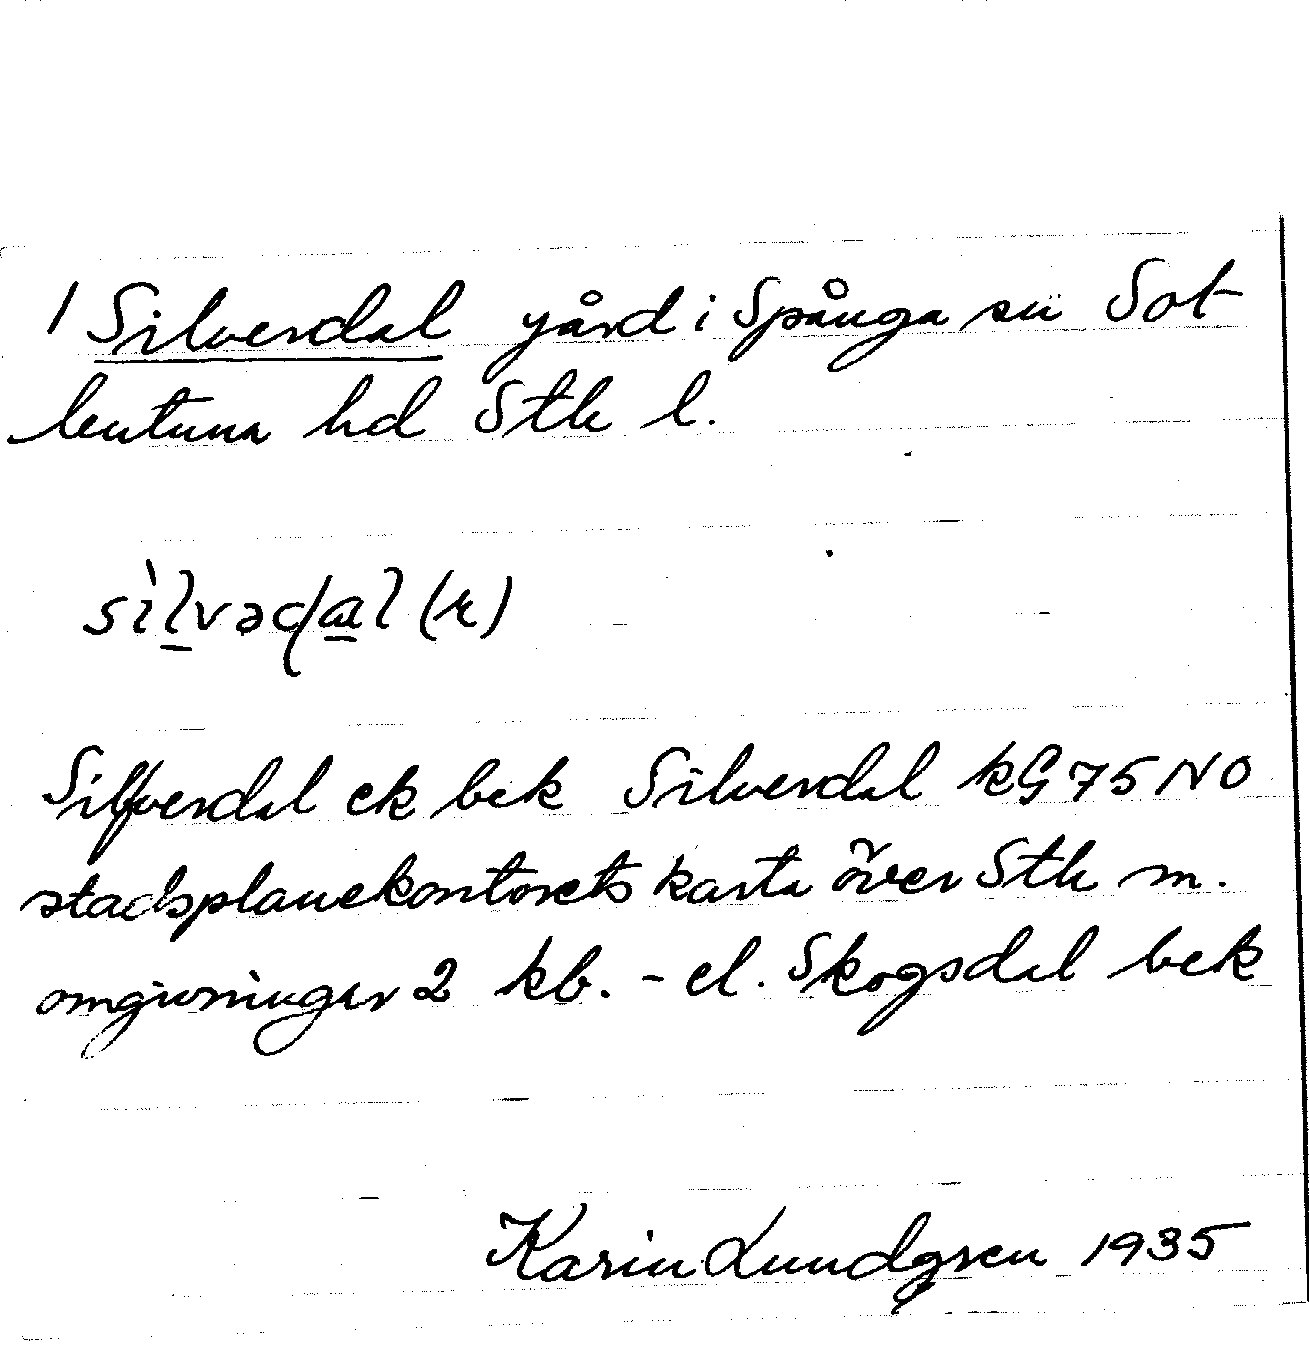 1 Silverdal gård i Spånga sn Sol
lentuna hd Sth l.
sìlvəḍal (k)
Silfverdal ek bek Silverdal kG 75 NO
stadsplanekontorets karta över Sth m.
omgivningar 2 kb. - el. Skogsdal bek
Karin Lundgren 1935